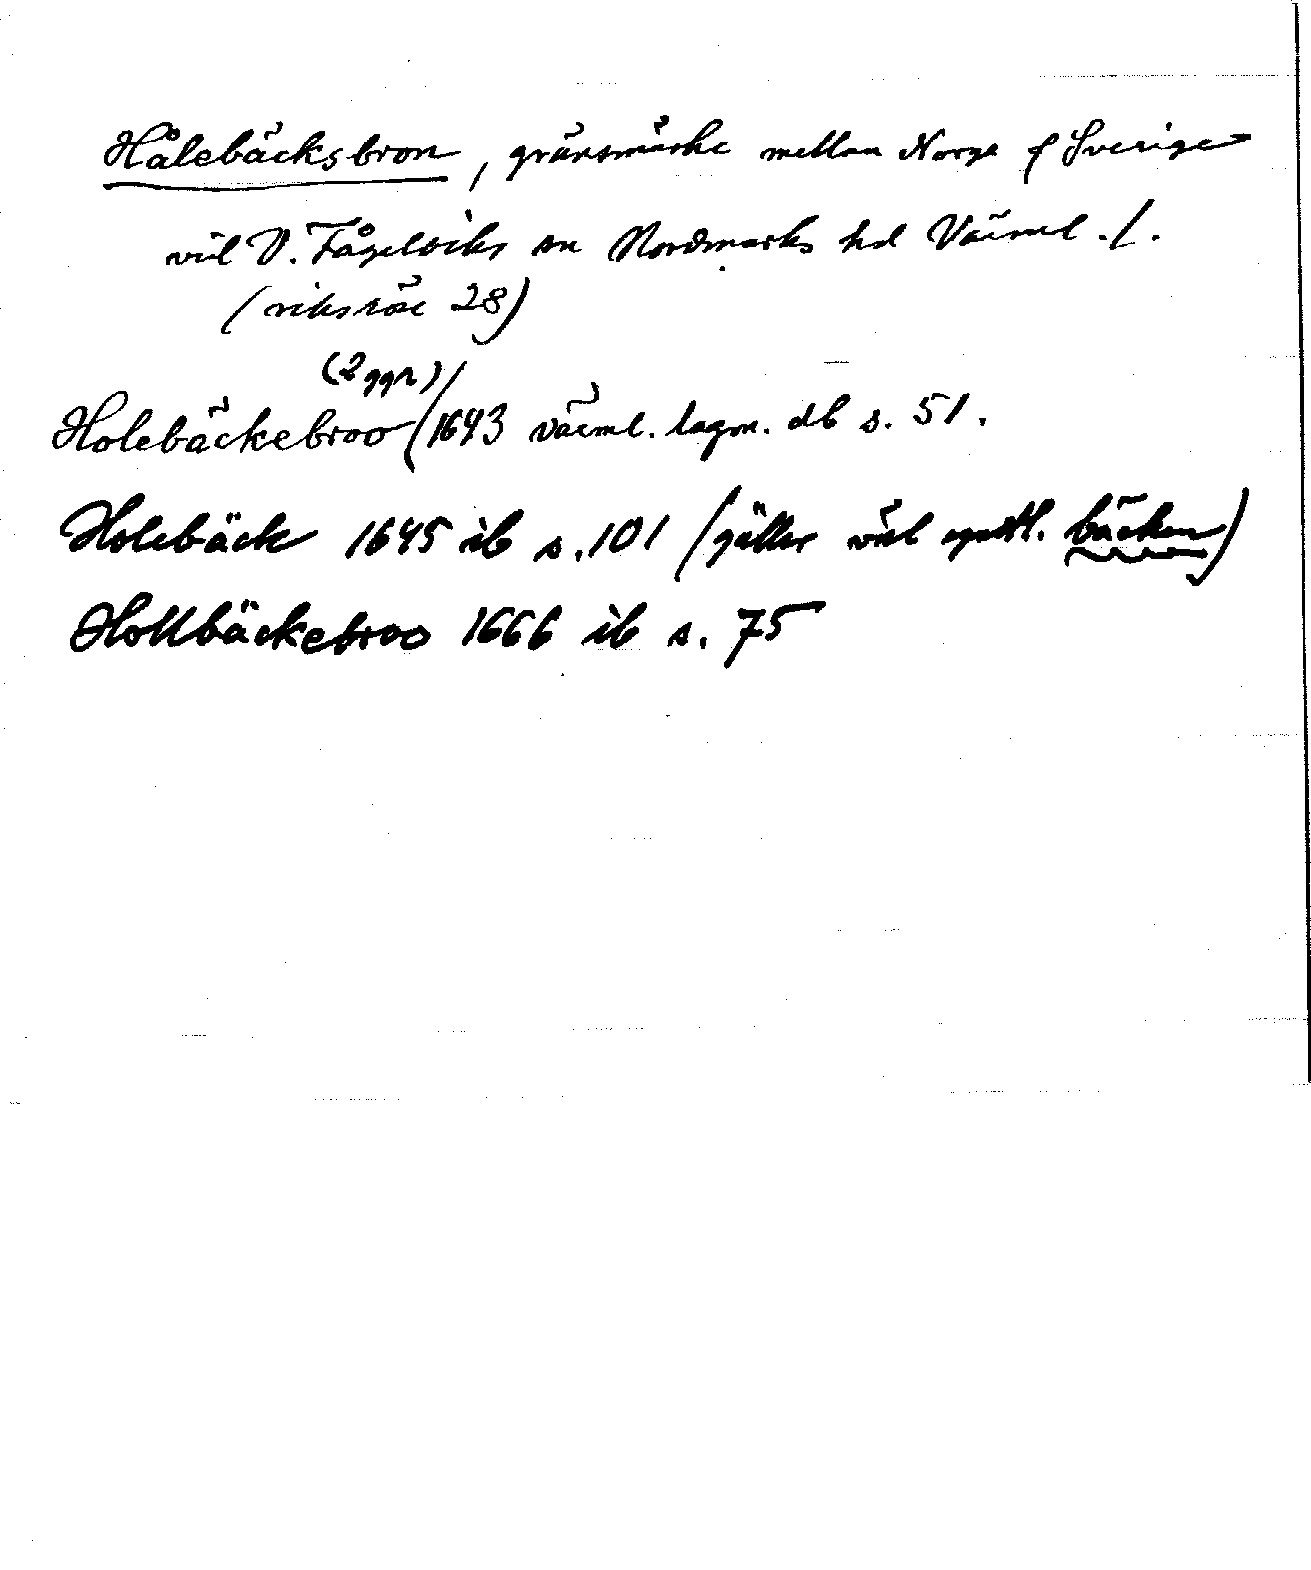 Hålebäcksbron, gränsmärke mellan Norge & Sverige
vid V. Fågelviks sn Nordmarks hd Värml. /.
(riksröse 28)
(2 ggr)/
Holebäckebroo (1643 värml. lagm. db s. 51.
Holebäck 1645 ib s. 101 (gäller väl egentl. bäcken)
Hollbäckebroo 1666 ib s. 75